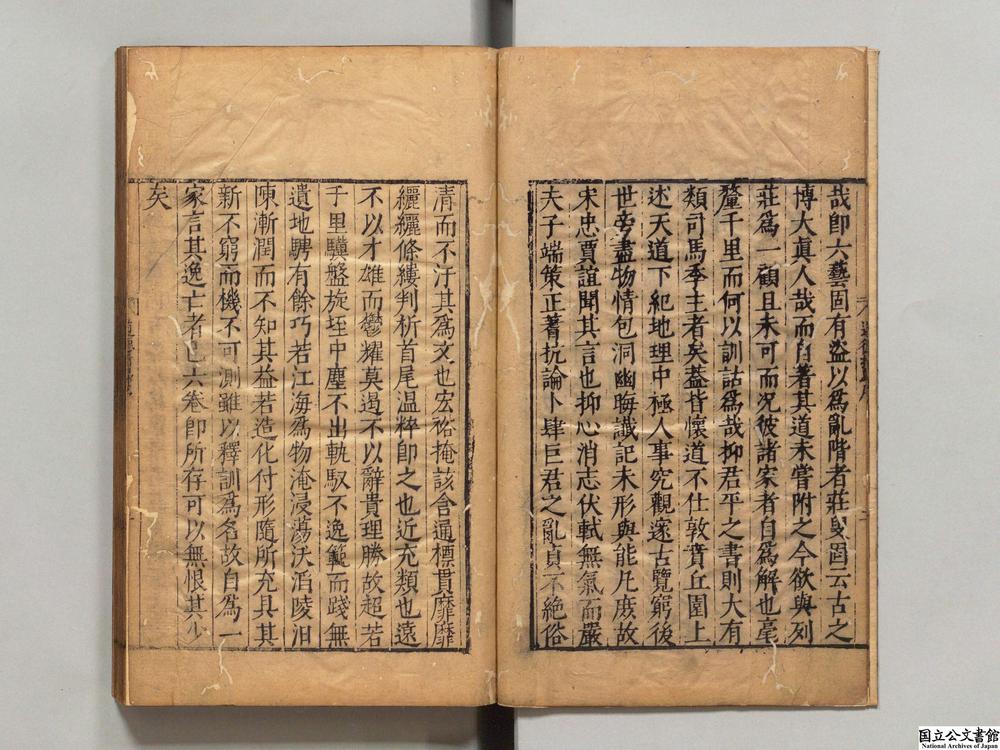 哉卽六藝固有盜以爲亂階者莊叟固云古之
博大眞人哉而自著其道未嘗附之今欲與列
莊爲一顧且未可而况彼諸家者自爲解也毫
釐千里而何以訓詁爲哉抑君平之書則大有
類司馬季主者矣葢皆懷道不仕敦賁丘園上
述天道下紀地理中極人事究觀邃古覽窮後
世旁盡物情包洞幽晦識記未形與能凢庻故
宋忠賈誼聞其言也抑心消志伏軾無氣而嚴
夫子端策正蓍抗論卜肆巨君之亂貞不絶俗
清而不汙其爲文也宏裕掩該含通標貫靡靡
纚纚條縷判析首尾温粹卽之也近充類也遠
不以才雄而鬱耀莫遏不以辭貴理勝故超若
千里驥盤旋垤中塵不出軌馭不逸範而踐無
遺地騁有餘巧若江海爲物淹浸蕩沃滔陵汩
陳漸潤而不知其益若造化付形隨所充具其
新不窮而機不可測雖以釋訓爲名故自爲一
家言其逸亡者也六卷卽所存可以無恨其少
矣
国立公文書館
National Archives of Japan